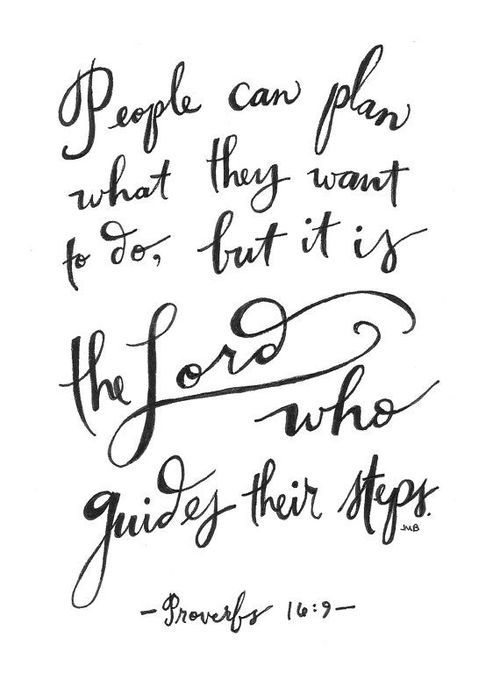 People can plan
what they want
to do, but it is
the Lord
who
guides their steps.
JMB
- Proverbs 16:9 -